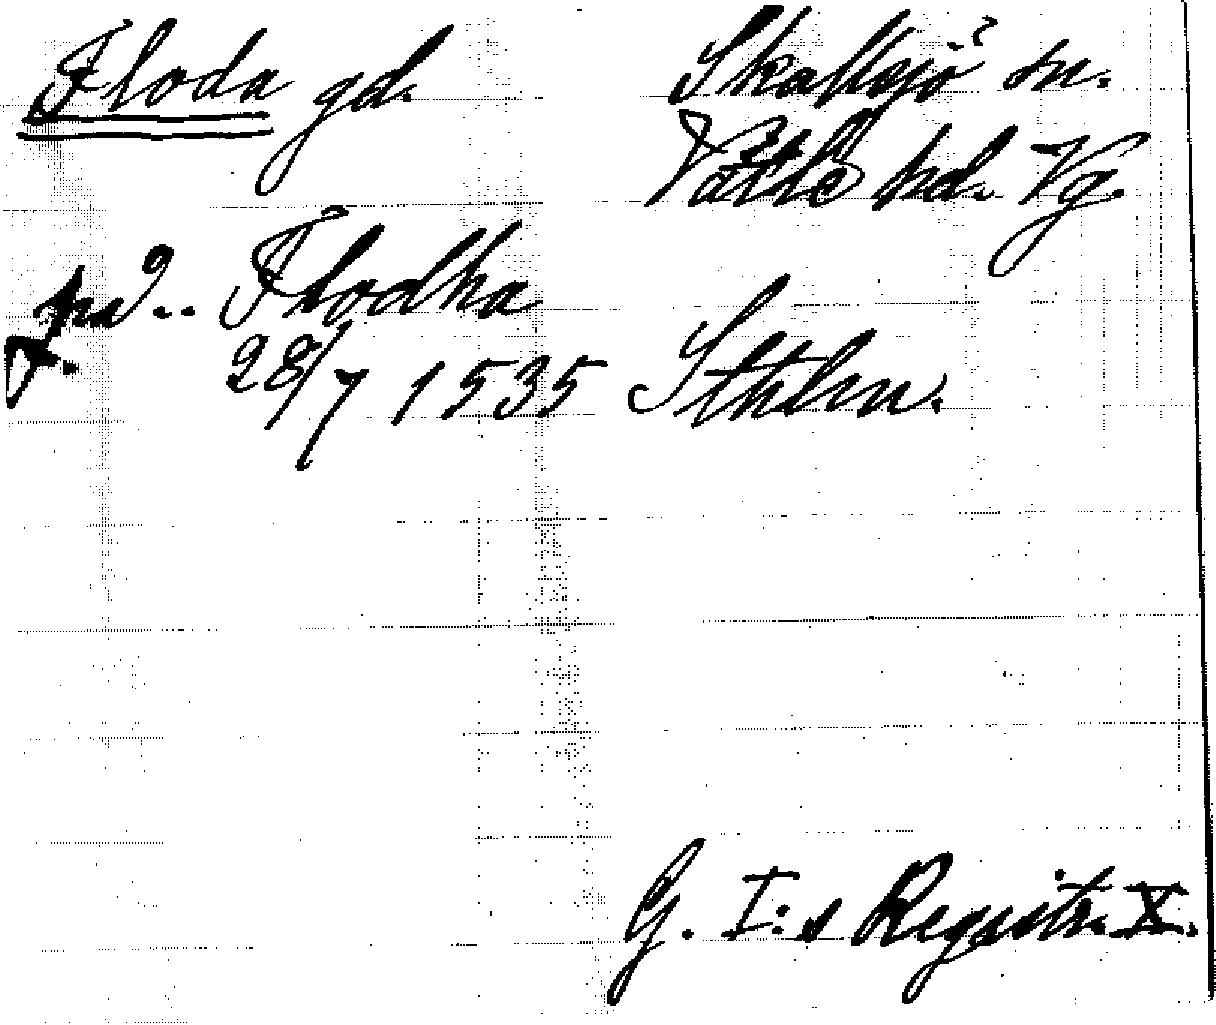 Floda gd.
Skallsjö? sn.
Vättle hd. Vg.
Flodha
28/7 1535 Sthlm.
G. I:s Registr. X.